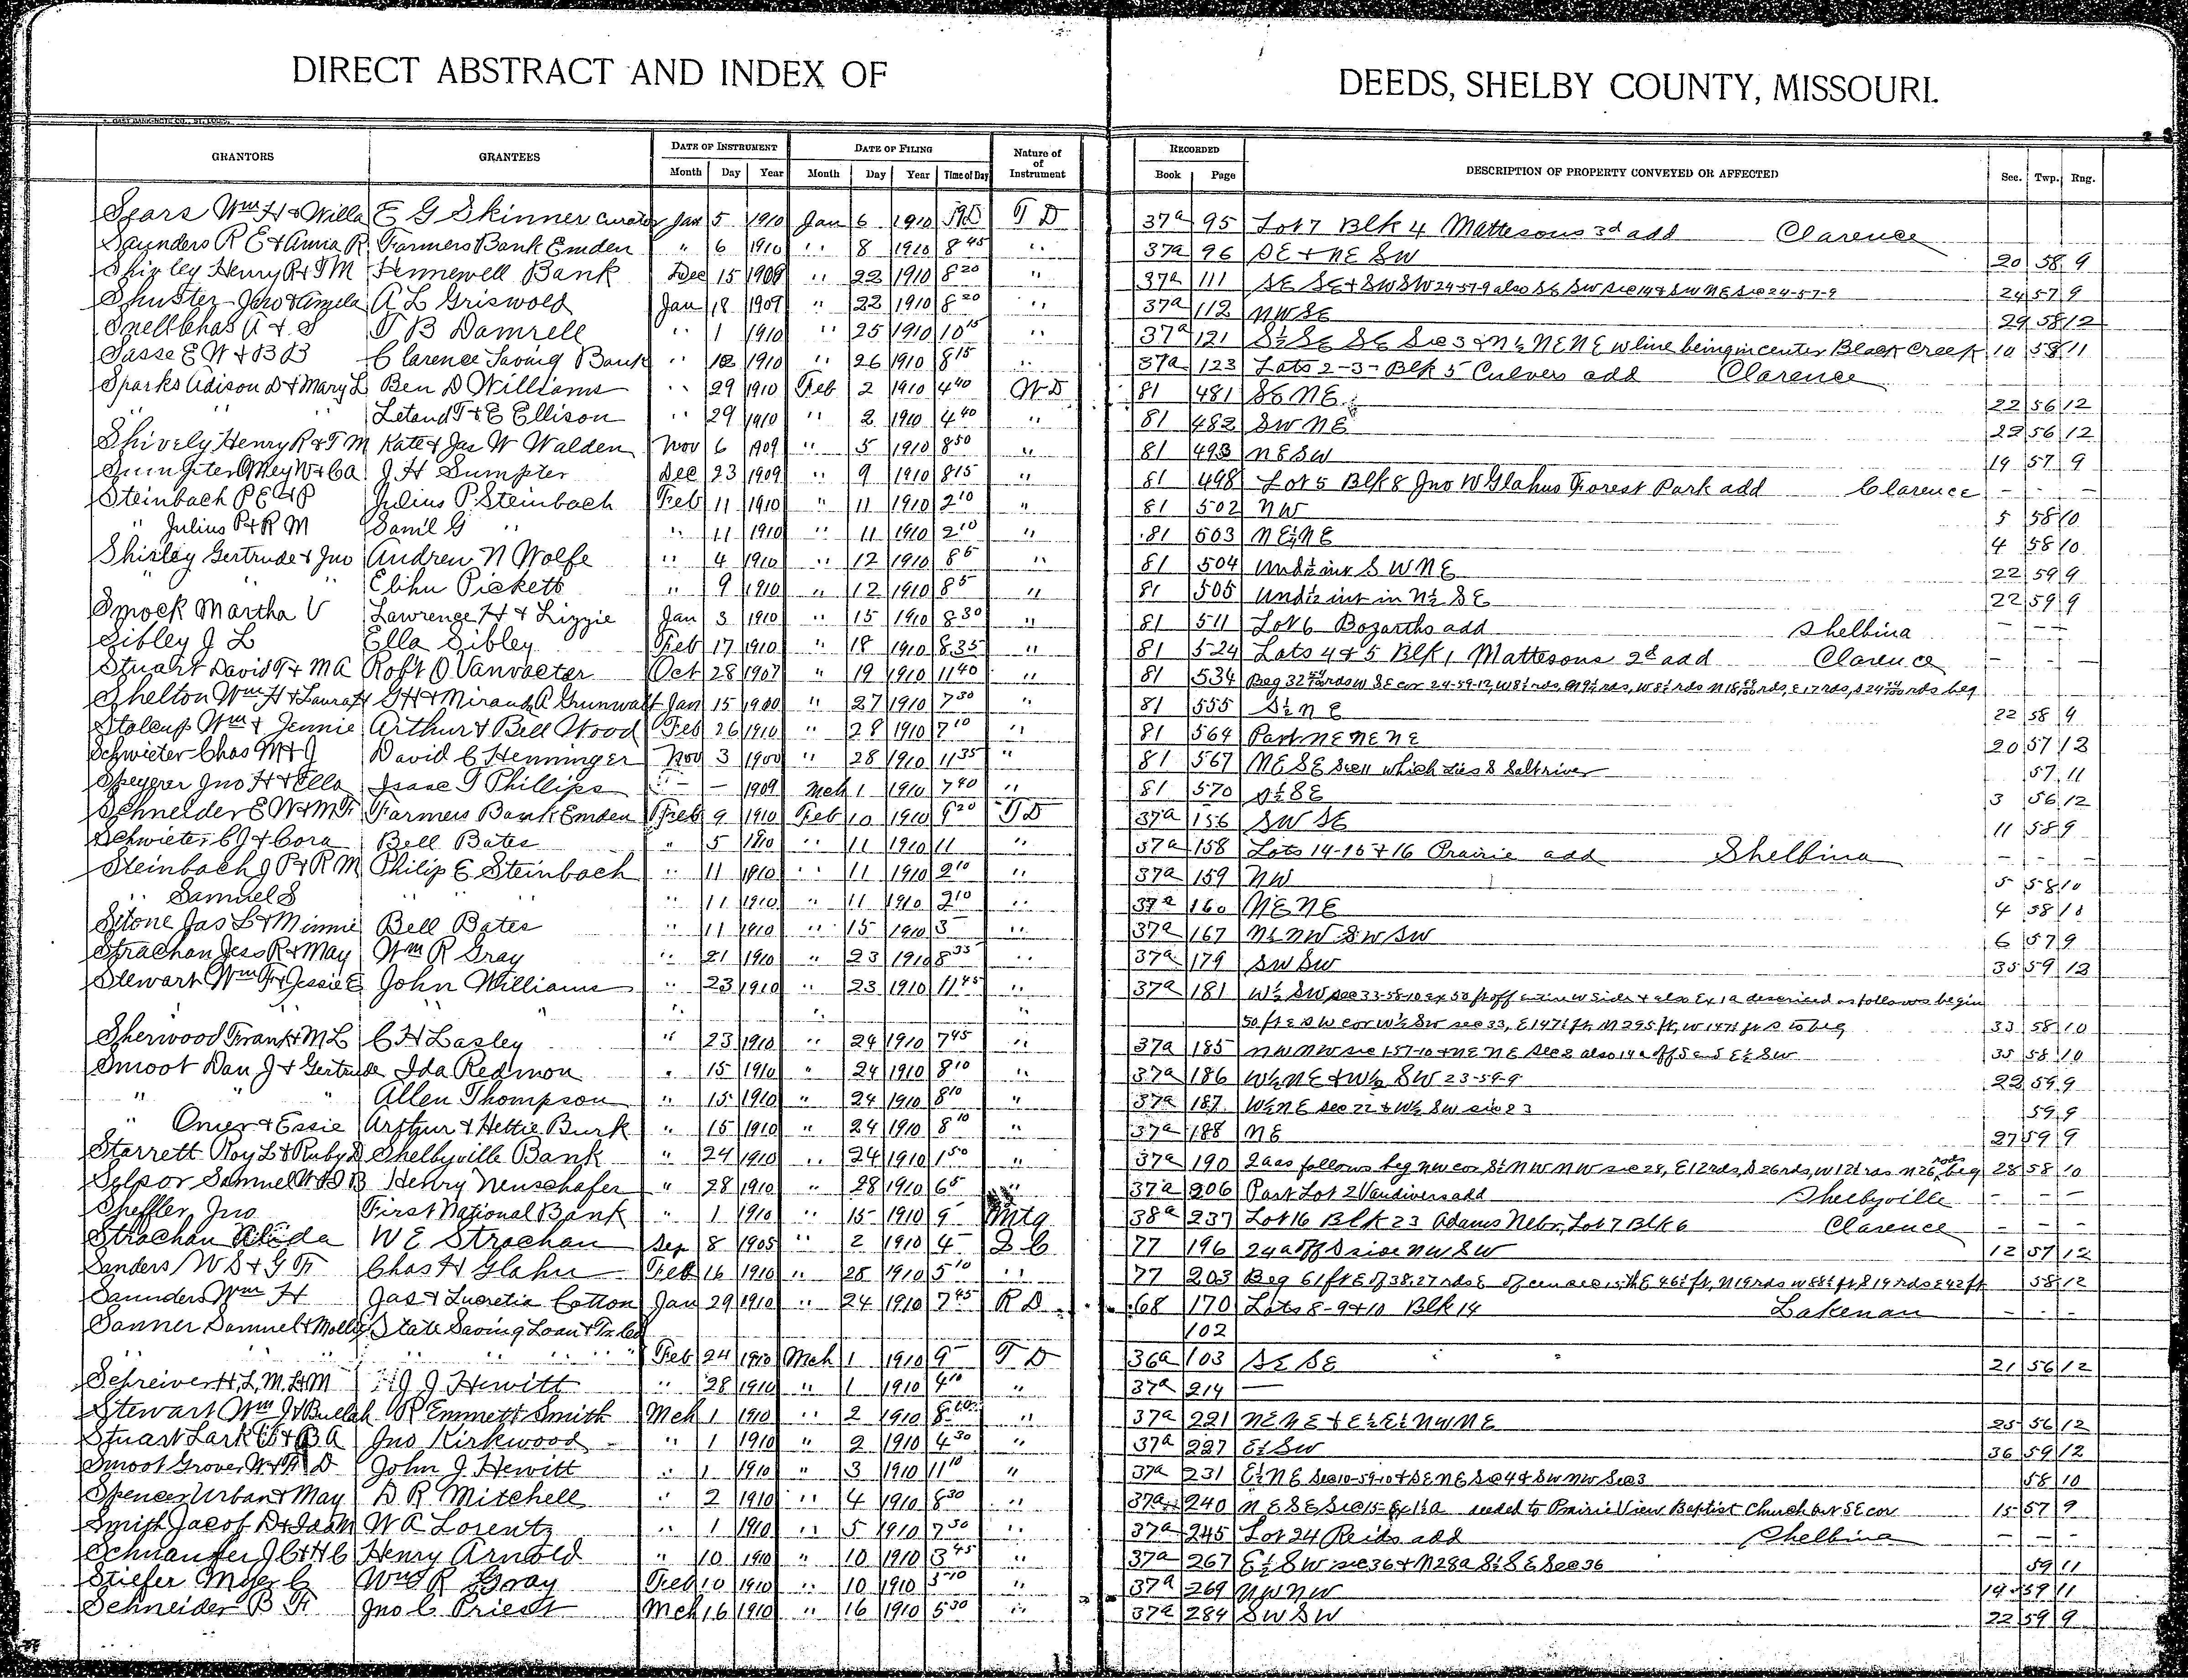 DIRECT ABSTRACT AND INDEX OF DEEDS, SHELBY COUNTY, MISSOURI.
GRANTORS GRANTEES DATE OF INSTRUMENT DATE OF FILING Nature of of Instrument RECORDED DESCRIPTION OF PROPERTY CONVEYED OR AFFECTED Sec. Twp. Rng.
Month Day Year Month Day Year Time of Day Book Page
Sears Wm H & Willa E G Skinner curator Jan 5 1910 Jan 6 1910 T D 37a 95 Lot 7 Blk 4 Mattesons 3d add Clarence
Saunders R E & Anna R Farmers Bank Emden " 6 1910 " 8 1910 8 45 " 37a 96 SE & NE SW 20 58 9
Shirley Henry R & T M Hunnewell Bank Dec 15 1909 " 22 1910 8 20 " 37a 111 SE SE & SW SW 24-57-9 also SE SW sec 14 & SW NE Sec 24-57-9 24 57 9
Shuster Jno & Angela A L Griswold Jan 18 1909 " 22 1910 8 20 " 37a 112 NW SE 29 58 12
Snell Chas A & S T B Damrell " 1 1910 " 25 1910 10 15 " 37a 121 S½ SE SE Sec 3 & N½ NE NE w line being in center Black Creek 10 58 11
Sasse E W & B B Clarence Saving Bank " 12 1910 " 26 1910 8 15 " 37a 123 Lots 2-3- Blk 5 Culvers add Clarence
Sparks Adison D & Mary L Ben D Williams " 29 1910 Feb 2 1910 4 40 W D 81 481 SE NE 22 56 12
" " " Leland T & E Ellison " 29 1910 " 2 1910 4 40 " 81 482 SW NE 22 56 12
Shively Henry R & T M Kate & Jas W Walden Nov 6 1909 " 5 1910 8 50 " 81 493 NE SW 19 57 9
Sumpter Omey W & C A J H Sumpter Dec 23 1909 " 9 1910 8 15 " 81 498 Lot 5 Blk 8 Jno W Glahns Forest Park add Clarence - - -
Steinbach P E & P Julius P Steinbach Feb 11 1910 " 11 1910 2 10 " 81 502 NW 5 58 10
" Julius P & R M Sam'l G " " 11 1910 " 11 1910 2 10 " 81 503 NE¼ NE 4 58 10
Shirley Gertrude & Jno Andrew N Wolfe " 4 1910 " 12 1910 8 5 " 81 504 Und ½ int S W N E 22 59 9
" " " Elihu Pickett " 9 1910 " 12 1910 8 5 " 81 505 Und ½ int in N½ SE 22 59 9
Smock Martha V Lawrence H & Lizzie Jan 3 1910 " 15 1910 8 30 " 81 511 Lot 6 Bozarths add Shelbina - - -
Sibley J L Ella Sibley Feb 17 1910 " 18 1910 8 35 " 81 524 Lots 4 & 5 Blk 1 Mattesons 2d add Clarence - - -
Stuart David T & M A Rob't O Vanvacter Oct 28 1907 " 19 1910 11 40 " 81 534 Beg 32 rds W SE cor 24-59-12, W 8½ rds, N 9½ rds, W 8½ rds N 15 rds, E 17 rds, S 24 rds beg
Shelton Wm H & Laura H G H & Miranda A Grunwalt Jan 15 1900 " 27 1910 7 30 " 81 555 S½ NE 22 58 9
Stalcup Wm & Jennie Arthur & Bell Wood Feb 26 1910 " 28 1910 7 10 " 81 564 Part NE NE NE 20 57 12
Schwieter Chas M & J David C Henninger Nov 3 1900 " 28 1910 11 35 " 81 567 NE SE Sec 11 which Lies S Salt river 57 11
Speyerer Jno H & Ella Isaac T Phillips - - 1909 Mch 1 1910 7 40 " 81 570 S½ SE 3 56 12
Schneider E W & M F Farmers Bank Emden Feb 9 1910 Feb 10 1910 9 20 T D 37a 156 SW SE 11 58 9
Schwieter C J & Cora Bell Bates " 5 1910 " 11 1910 11 " 37a 158 Lots 14-15 & 16 Prairie add Shelbina - - -
Steinbach J P & R M Philip E Steinbach " 11 1910 " 11 1910 2 10 " 37a 159 NW 5 58 10
" Samuel S " " " 11 1910 " 11 1910 2 10 " 37a 160 NE NE 4 58 10
Stone Jas L & Minnie Bell Bates " 11 1910 " 15 1910 3 - " 37a 167 N½ NW SW SW 6 57 9
Strachan Jess R & May Wm R Gray " 21 1910 " 23 1910 8 35 " 37a 179 SW SW 35 59 12
Stewart Wm F & Jessie E John Williams " 23 1910 " 23 1910 11 45 " 37a 181 W½ SW sec 33-58-10 ex 50 ft off entire W side & also Ex 1a described as follows begin
" " " " 50 ft E SW cor W½ SW sec 33, E 147½ ft, N 295 ft, W 147½ ft S to beg 33 58 10
Sherwood Frank & M L C H Lasley " 23 1910 " 24 1910 7 45 " 37a 185 NW NW sec 1-57-10 & NE NE Sec 2 also 14a off S end E½ SW 35 58 10
Smoot Dan J & Gertrude Ida Redmon " 15 1910 " 24 1910 8 10 " 37a 186 W½ NE & W½ SW 23-59-9 22 59 9
" " " Allen Thompson " 15 1910 " 24 1910 8 10 " 37a 187 W½ NE sec 22 & W½ SW sec 23 59 9
" Omer & Essie Arthur & Hettie Burk " 15 1910 " 24 1910 8 10 " 37a 188 NE 27 59 9
Starrett Roy L & Ruby D Shelbyville Bank " 24 1910 " 24 1910 1 50 " 37a 190 2a as follows beg NW cor S½ NW NW sec 28, E 12 rds, S 26 rds, W 12½ rds N 26 rods beg 28 58 10
Selpor Samuel W & I B Henry Neuschafer " 28 1910 " 28 1910 6 5 " 37a 206 Part Lot 2 Vandivers add Shelbyville - - -
Sheffler, Jno First National Bank " 1 1910 " 15 1910 9 - Mtg 38a 237 Lot 16 Blk 23 Adams Lot 7 Blk 6 Clarence - - -
Strachan Alida W E Strachan Sep 8 1905 " 2 1910 4 - Q C 77 196 24a off S side NW SW 12 57 12
Sanders W S & G F Chas H Glahn Feb 16 1910 " 28 1910 5 10 " 77 203 Beg 61 ft E of 38.27 rds E of cen sec 15, th E 46½ ft, N 19 rds W 88½ ft S 19 rds E 42 ft 58 12
Saunders Wm H Jas & Lucretia Cotton Jan 29 1910 " 24 1910 7 45 R D 68 170 Lots 8-9 & 10 Blk 14 Lakenan - - -
Sanner Samuel & Mollie State Saving Loan & Tr Co 102
" " " " " " Feb 24 1910 Mch 1 1910 9 - T D 36a 103 SE SE 21 56 12
Schreiver H, L, M, L & M J J Hewitt " 28 1910 " 1 1910 4 10 " 37a 214 —
Stewart Wm J & Bullah R Emmett Smith Mch 1 1910 " 2 1910 8 " 37a 221 NE NE & E½ E½ NW NE 25 56 12
Stuart Lark & B A Jno Kirkwood " 1 1910 " 2 1910 4 30 " 37a 227 E½ SW 36 59 12
Smoot Grover W & F D John J. Hewitt " 1 1910 " 3 1910 11 10 " 37a 231 E½ NE Sec 10-59-10 & SE NE Sec 4 & SW NW Sec 3 58 10
Spencer Urban & May D R Mitchell " 2 1910 " 4 1910 8 30 " 37a 240 NE SE Sec 15- Ex 1½a deeded to Prairie View Baptist Church out SE cor 15 57 9
Smith Jacob D & Ida M W A Lorentz " 1 1910 " 5 1910 7 30 " 37a 245 Lot 24 Reids add Shelbina - - -
Schnaufer J C & H C Henry Arnold " 10 1910 " 10 1910 3 45 " 37a 267 E½ SW sec 36 & N 28a S½ SE Sec 36 59 11
Stiefer Moyer C Wm R Gray Feb 10 1910 " 10 1910 5 10 " 37a 269 NW NW 19 59 11
Schneider B F Jno C Priest Mch 16 1910 " 16 1910 5 30 " 37a 284 SW SW 22 59 9